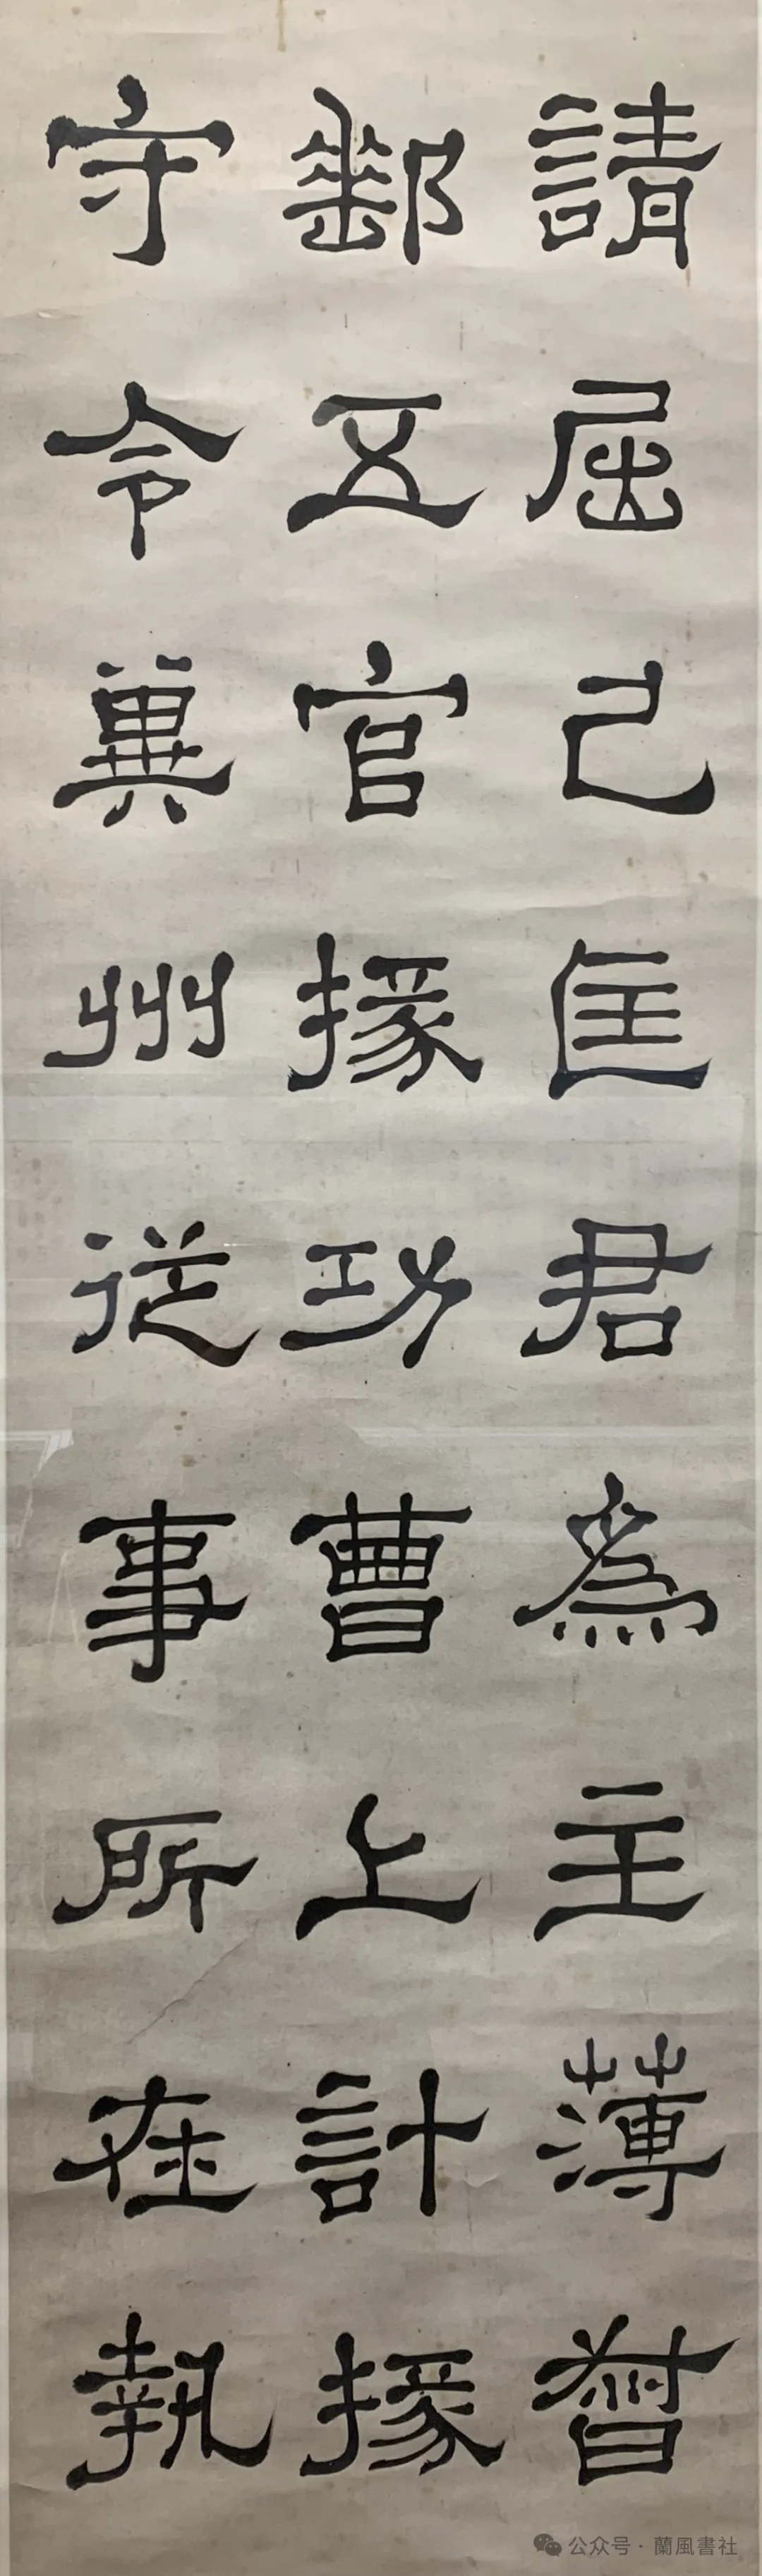 請屈己匡君為主薄督
郵五官掾功曹上計掾
守令冀州從事所在執
公众号 · 蘭風書社